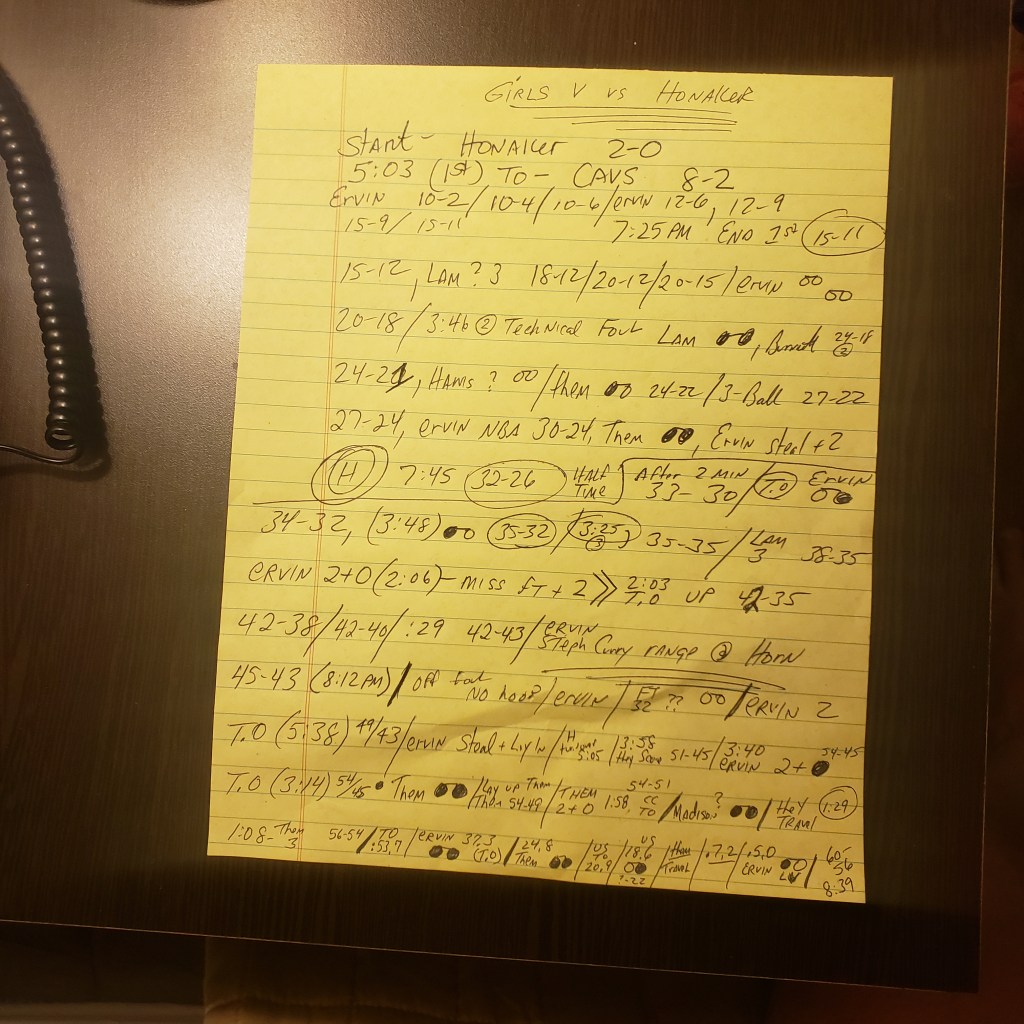 GIRLS V VS HONAKER
START - HONAKER 2-0
5:03 (1st) TO - CAVS 8-2
ERVIN 10-2/10-4/10-6/ervin 12-6, 12-9
15-9/ 15-11 7:25 PM END 1st 15-11
15-12, LAM ? 3 18-12/20-12/20-15/ervin OO OO
20-18/3:46 ② Technical Foul LAM ●●, 24-18 ②
24-21, HAMS ? OO/them ●O 24-22/3-Ball 27-22
27-24, ervin NBA 30-24, Them ●●, Ervin steal +2
H 7:45 32-26 HALF TIME After 2 MIN 33-30/T.O ERVIN O●
34-32, (3:48) ●O 35-32/3:25 ③ 35-35/LAM 3 38-35
ERVIN 2+0 (2:06) - MISS FT + 2 >> 2:03 T.O UP 42-35
42-38/42-40/:29 42-43/ERVIN STEPH CURRY RANGE @ HORN
45-43 (8:12 PM)/ OFF foul NO hoop/ervin/FT 32 ?? OO/ERVIN 2
T.O (5:38) 49/43/ervin Steal + Lay In/H 5:05/3:58 they score 51-45/3:40 ERVIN 2+● 54-45
T.O (3:14) 54/45 • Them ●●/Lay up Them 54-49/THEM 2+0 1:58, 54-51 CC TO/Madison? ●●/they TRAVL 1:29
1:08- Them 3 56-54/TO :53.7/ERVIN 37.3 ●● (T.O)/24.8 Them ●●/US TO 20.9/US 18.6 OO ?-22/Travel/.7.2/.5.0 ERVIN ●O/60-56 8:39